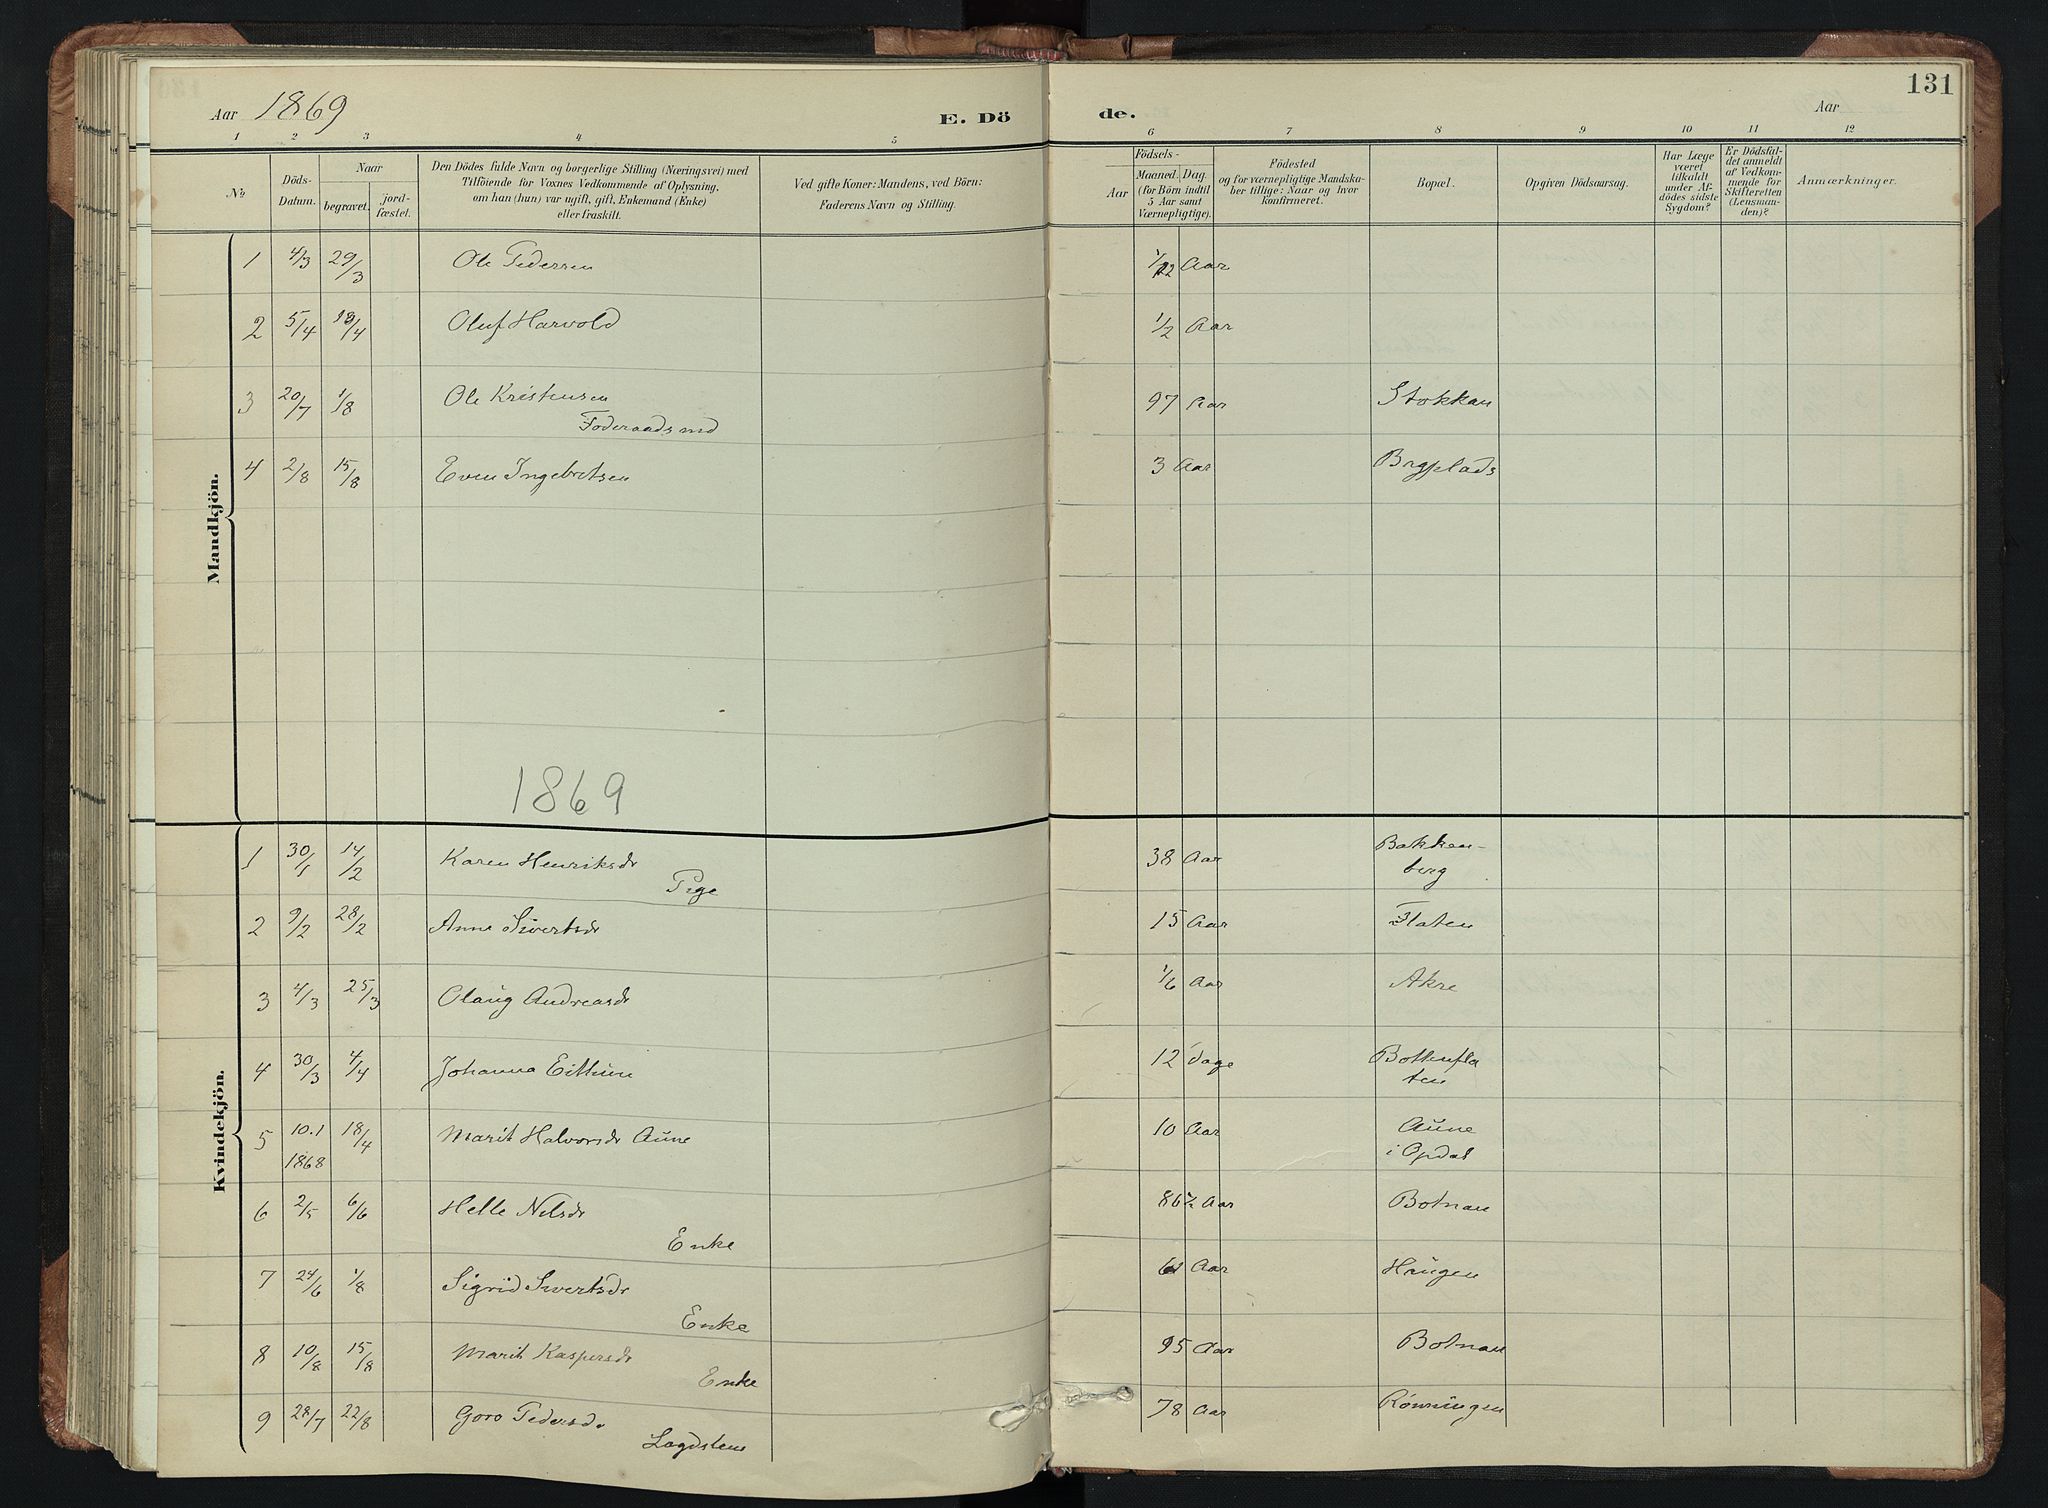 131
Aar 1869 E. Dö de. Aar
1 2 3 4 5 6 7 8 9 10 11 12
No. Döds-Datum. Naar begravet. jord-fæstet. Den Dödes fulde Navn og borgerlige Stilling (Næringsvei) med Tilföiende for Voxnes Vedkommende af Oplysning, om han (hun) var ugift, gift, Enkemand (Enke) eller fraskilt. Ved gifte Koner: Mandens, ved Börn: Faderens Navn og Stilling. Födsels- Aar Maaned. Dag. (for Börn indtil 5 Aar samt Værnepligtige). Födested og for værnepligtige Mandskaber tillige: Naar og hvor konfirmeret. Bopæl. Opgiven Dödsaarsag. Har Læge været tilkaldt under Afdödes sidste Sygdom? Er Dödsfaldet anmeldt af Vedkommende for Skifteretten (Lensmanden)? Anmærkninger.
Mandkjön.
1 4/3 29/3 Ole Pedersen 1/12 Aar
2 5/4 18/4 Oluf Harvold 1/2 Aar
3 20/7 1/8 Ole Kristensen 97 Aar Stokkan
Foderaadsmd
4 2/8 15/8 Even Ingebretsen 3 Aar Brgplads
1869
Kvindekjön.
1 30/1 14/2 Karen Henriksdr 38 Aar Bakken-
Pige berg
2 9/2 28/2 Anne Sivertsdr 15 Aar Flaten
3 4/3 25/3 Olaug Andreasdr 1/6 Aar Akre
4 30/3 4/4 Johanna Eithun 12 dage Bottenfla
ten
5 10.1 18/4 Marit Halvorsdr Aune 10 Aar Aune
1868 i Opdal
6 2/5 6/6 Helle Nilsdr 86 1/2 Aar Botnan
Enke
7 24/6 1/8 Sigrid Sivertsdr Aar Haugen
Enke
8 10/8 15/8 Marit Kaspersdr 95 Aar Botnan
Enke
9 28/7 22/8 Goro Pedersdr 78 Aar Rønningen
Lægdslem